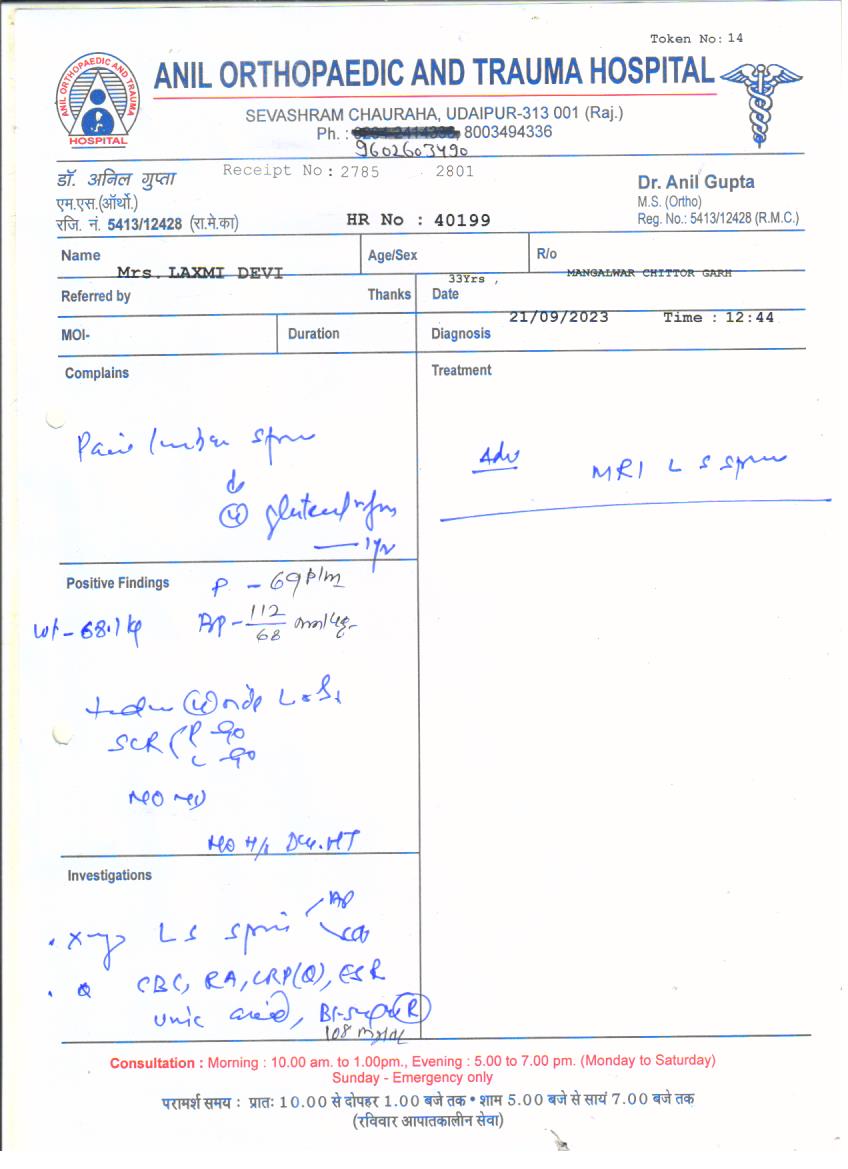 Token No: 14
ANIL ORTHOPAEDIC AND TRAUMA HOSPITAL
ANIL ORTHOPAEDIC AND TRAUMA
HOSPITAL
SEVASHRAM CHAURAHA, UDAIPUR-313 001 (Raj.)
Ph. : 8003494336
9602603490
Receipt No: 2785 2801
डॉ. अनिल गुप्ता
एम.एस.(ऑर्थो.)
रजि. नं. 5413/12428 (रा.मे.का)
HR No : 40199
Dr. Anil Gupta
M.S. (Ortho)
Reg. No.: 5413/12428 (R.M.C.)
Name Mrs. LAXMI DEVI
Age/Sex 33Yrs ,
R/o MANGALWAR CHITTOR GARH
Referred by Thanks
Date 21/09/2023 Time : 12:44
MOI-
Duration
Diagnosis
Complains
Pain lumbar spine
gluteal
1yr
Treatment
Adv MRI L S Spine
Positive Findings
P - 69 P/m
Wt - 68.1 kg
BP - 112/68 mm/Hg
SLR R 90
L 90
NO H/o DM.HT
Investigations
X-ray L S Spine AP
CBC, RA, CRP(Q), ESR
Uric acid, Bl-sugar R
108 mg/dl
Consultation : Morning : 10.00 am. to 1.00pm., Evening : 5.00 to 7.00 pm. (Monday to Saturday)
Sunday - Emergency only
परामर्श समय : प्रातः 10.00 से दोपहर 1.00 बजे तक • शाम 5.00 बजे से सायं 7.00 बजे तक
(रविवार आपातकालीन सेवा)